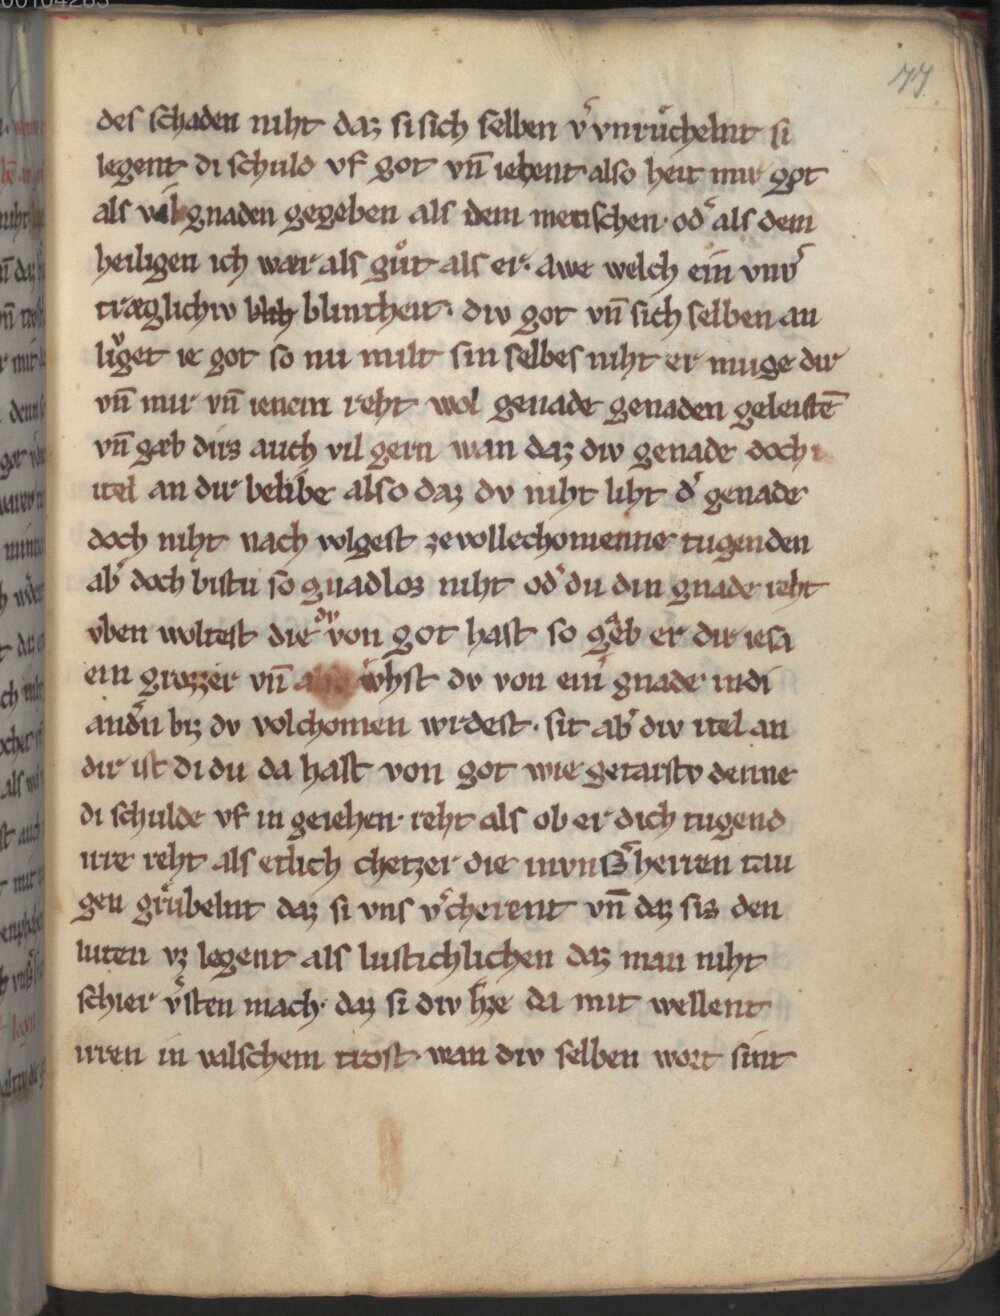 77
des schaden niht daz si sich selben v͛ vnruͤchelnt si
legent di schuld vf got vn̄ iehent also heit mir got
als vil gnaden gegeben als dem menschen· od͛ als dem
heiligen ich wær als guͦt als er· awe welch ein vnv͛
træglichiv blintheit· div got vn̄ sich selben an
livget ie got so nu milt sin selbes niht er muge dir
vn̄ mir vn̄ ienem reht wol genade genaden geleistē
vn̄ gæb dirs auch vil gern wan daz div genade doch
itel an dir belibe also daz dv niht liht d͛ genade
doch niht nach volgest ze vollechomenne tugenden
ab͛ doch bistu so gnadlos niht od͛ du din gnade reht
vben woltest die dv von got hast so gæb er dir iesa
ein grozzer vn̄ also whst dv von ein gnade in di
and͛n biz dv volchomen wrdest· sit ab͛ div itel an
dir ist di du da hast von got wie getarstv denne
di schulde vf in geiehen· reht als ob er dich tugend
irre reht als etlich chetzer die in vnß͛ herren tau
gen gruͤbelnt daz si vns v͛cherent vn̄ daz sis den
luten vz legent als lustichlichen daz man niht
schier v͛sten mach· daz si div hze da mit wellent
irren in valschem trost· wan div selben wort sint